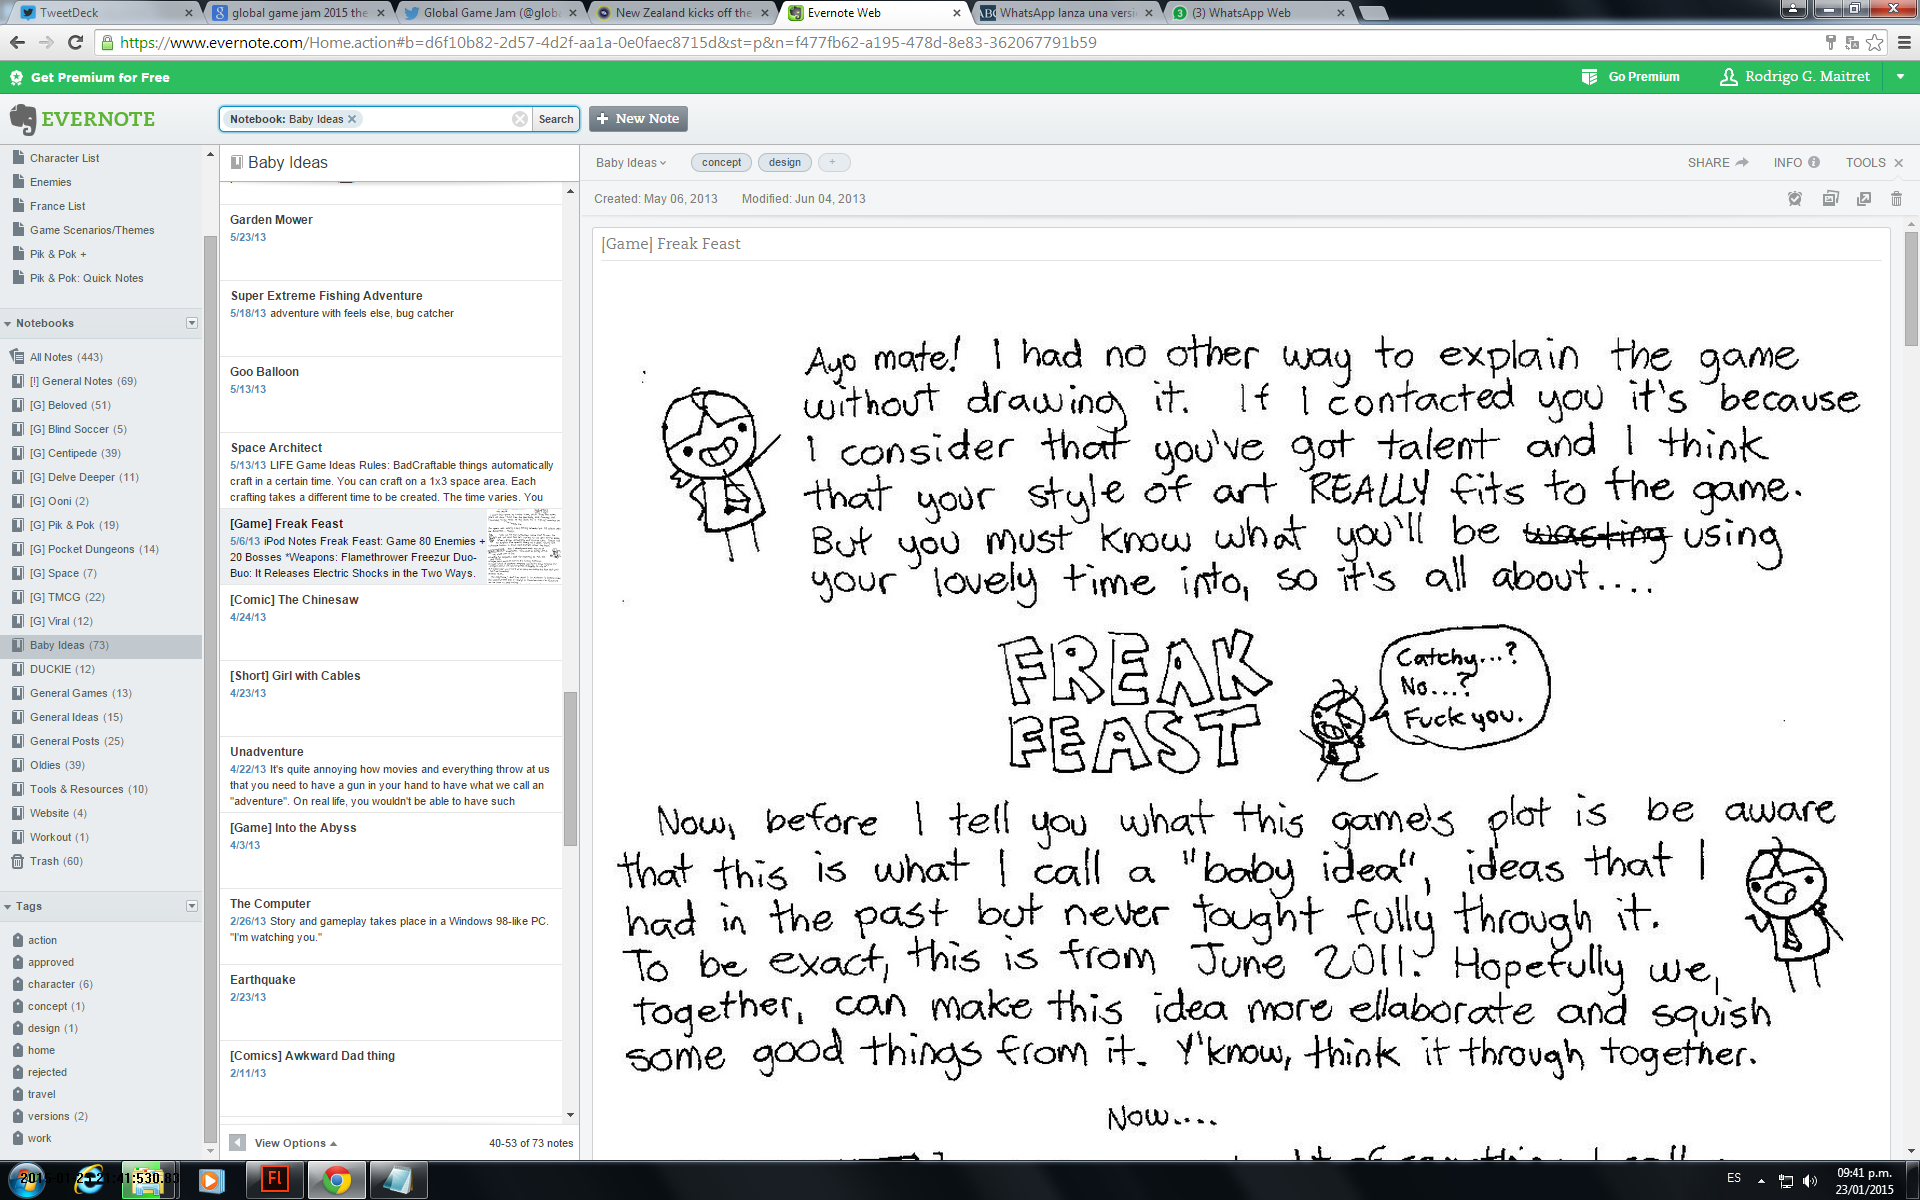 TweetDeck
global game jam 2015 the
Global Game Jam (@globa
New Zealand kicks off the
Evernote Web
WhatsApp lanza una versi
(3) WhatsApp Web
https://www.evernote.com/Home.action#b=d6f10b82-2d57-4d2f-aa1a-0e0faec8715d&st=p&n=f477fb62-a195-478d-8e83-362067791b59
Get Premium for Free
Go Premium
Rodrigo G. Maitret
EVERNOTE
Notebook: Baby Ideas
Search
+ New Note
Character List
Enemies
France List
Game Scenarios/Themes
Pik & Pok +
Pik & Pok: Quick Notes
Notebooks
All Notes (443)
[!] General Notes (69)
[G] Beloved (51)
[G] Blind Soccer (5)
[G] Centipede (39)
[G] Delve Deeper (11)
[G] Ooni (2)
[G] Pik & Pok (19)
[G] Pocket Dungeons (14)
[G] Space (7)
[G] TMCG (22)
[G] Viral (12)
Baby Ideas (73)
DUCKIE (12)
General Games (13)
General Ideas (15)
General Posts (25)
Oldies (39)
Tools & Resources (10)
Website (4)
Workout (1)
Trash (60)
Tags
action
approved
character (6)
concept (1)
design (1)
home
rejected
travel
versions (2)
work
Baby Ideas
Garden Mower
5/23/13
Super Extreme Fishing Adventure
5/18/13 adventure with feels else, bug catcher
Goo Balloon
5/13/13
Space Architect
5/13/13 LIFE Game Ideas Rules: BadCraftable things automatically
craft in a certain time. You can craft on a 1x3 space area. Each
crafting takes a different time to be created. The time varies. You
[Game] Freak Feast
5/6/13 iPod Notes Freak Feast: Game 80 Enemies +
20 Bosses *Weapons: Flamethrower Freezur Duo-
Buo: It Releases Electric Shocks in the Two Ways.
[Comic] The Chinesaw
4/24/13
[Short] Girl with Cables
4/23/13
Unadventure
4/22/13 It's quite annoying how movies and everything throw at us
that you need to have a gun in your hand to have what we call an
"adventure". On real life, you wouldn't be able to have such
[Game] Into the Abyss
4/3/13
The Computer
2/26/13 Story and gameplay takes place in a Windows 98-like PC.
"I'm watching you."
Earthquake
2/23/13
[Comics] Awkward Dad thing
2/11/13
View Options
40-53 of 73 notes
Baby Ideas
concept
design
+
SHARE
INFO
TOOLS
Created: May 06, 2013
Modified: Jun 04, 2013
[Game] Freak Feast
Ayo mate! I had no other way to explain the game
without drawing it. If I contacted you it's because
I consider that you've got talent and I think
that your style of art REALLY fits to the game.
But you must know what you'll be wasting using
your lovely time into, so it's all about....
FREAK
FEAST
Catchy...?
No...?
Fuck you.
Now, before I tell you what this game's plot is be aware
that this is what I call a "baby idea", ideas that I
had in the past but never tought fully through it.
To be exact, this is from June 2011. Hopefully we,
together, can make this idea more ellaborate and squish
some good things from it. Y'know, think it through together.
Now....
Fl
ES
09:41 p.m.
23/01/2015